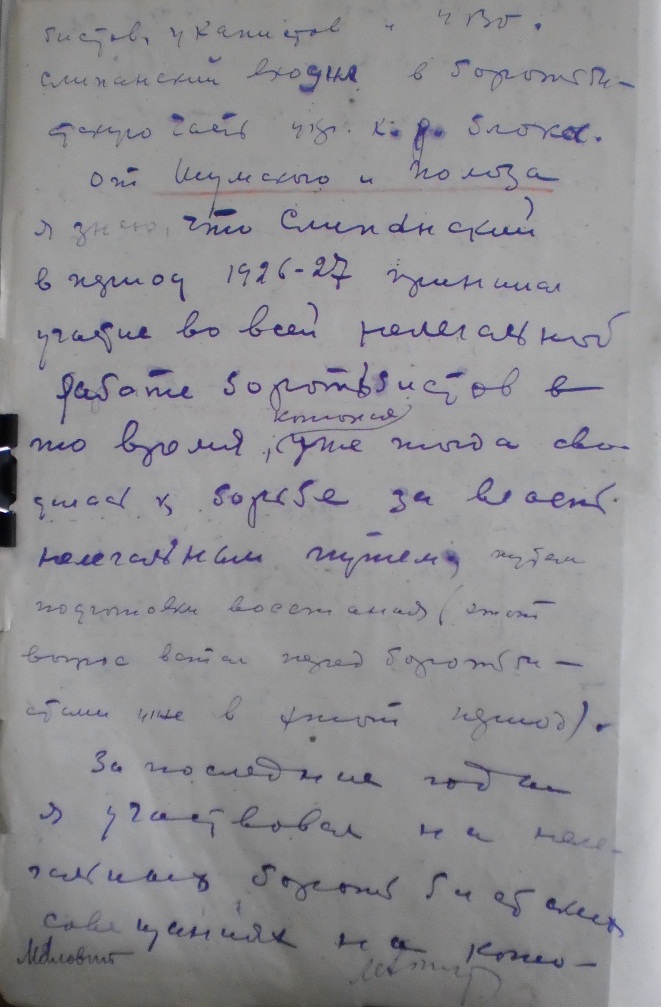 бистов, укапистов и УВО.
Слипанский входил в боротьби-
стскую часть укр. к.р. блока.
От Шумского и Полоза
я знаю, что Слипанский
в период 1926-27 принимал
участие во всей нелегальной
работе боротьбистов в
которая
то время, уже тогда сво-
дилась к борьбе за власть
нелегальным путем, путем
подготовки восстания (этот
вопрос встал перед боротьби-
стами уже в этот период).
За последние годы
я участвовал на неле-
гальных боротьбистских
совещаниях на кото-